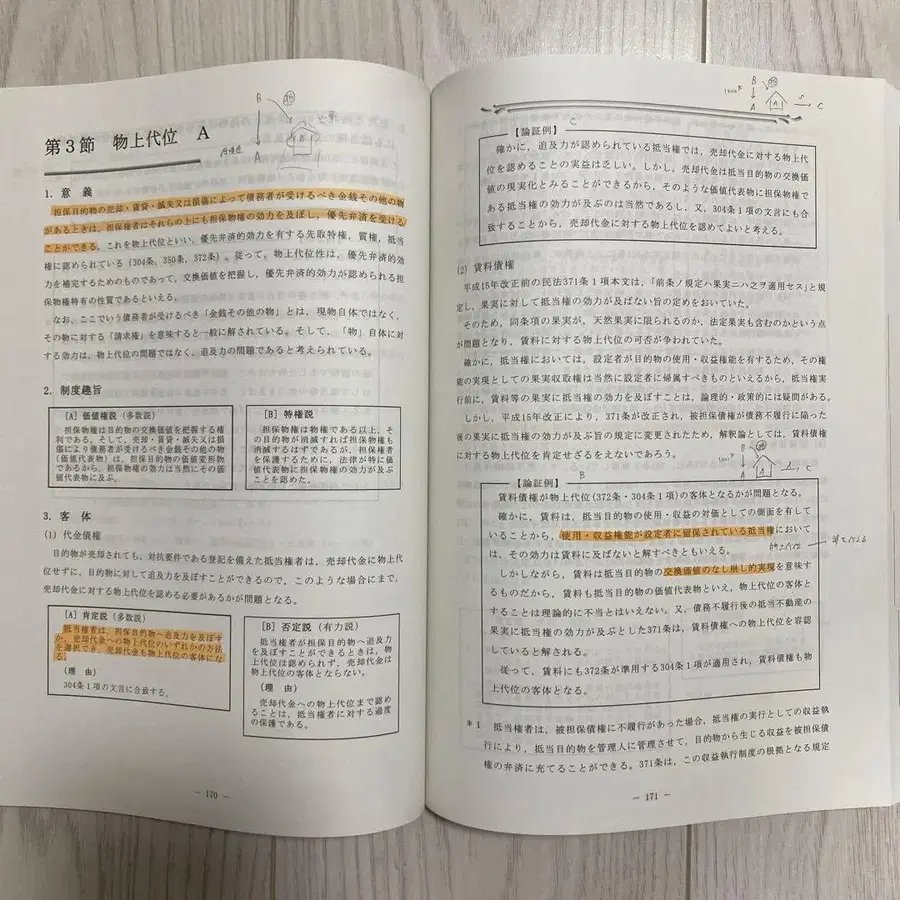 第3節 物上代位 A
B
火事
A
A
抵当権
1. 意 義
担保目的物の売却・賃貸・滅失又は損傷によって債務者が受けるべき金銭その他の物
があるときは、担保権者はそれらの上にも担保物権の効力を及ぼし、優先弁済を受ける
ことができる。これを物上代位といい、優先弁済的効力を有する先取特権、質権、抵当
権に認められている(304条、350条、372条)。従って、物上代位性は、優先弁済的効
力を補完するためのものであって、交換価値を把握し、優先弁済的効力が認められる担
保物権特有の性質であるといえる。
なお、ここでいう債務者が受けるべき「金銭その他の物」とは、現物自体ではなく、
その物に対する「請求権」を意味すると一般に解されている。そして、「物」自体に対
する効力は、物上代位の問題ではなく、追及力の問題であると考えられている。
2. 制度趣旨
[A] 価値権説(多数説)
担保物権は目的物の交換価値を把握する権
利である。そして、売却・賃貸・滅失又は損
傷により債務者が受けるべき金銭その他の物
(価値代表物)は、担保目的物の価値変形物
であるから、担保物権の効力は当然にその価
値代表物に及ぶ。
[B] 特権説
担保物権は物権である以上、そ
の目的物が消滅すれば担保物権も
消滅するはずであるが、担保権者
を保護するために、法律が特に価
値代表物に担保物権の効力が及ぶ
ことを認めた。
3. 客 体
(1) 代金債権
目的物が売却されても、対抗要件である登記を備えた抵当権者は、売却代金に物上代
位せずに、目的物に対して追及力を及ぼすことができるので、このような場合にまで、
売却代金に対する物上代位を認める必要があるかが問題となる。
[A] 肯定説(多数説)
抵当権者は、担保目的物へ追及力を及ぼす
か、売却代金への物上代位のいずれかの方法
を選択でき、売却代金も物上代位の客体にな
る。
(理 由)
304条1項の文言に合致する。
[B] 否定説(有力説)
抵当権者が担保目的物へ追及力
を及ぼすことができるときは、物
上代位は認められず、売却代金は
物上代位の客体とならない。
(理 由)
売却代金への物上代位まで認め
ることは、抵当権者に対する過度
の保護である。
- 170 -
B
A
C
【論証例】
C
確かに、追及力が認められている抵当権では、売却代金に対する物上代
位を認めることの実益は乏しい。しかし、売却代金は抵当目的物の交換価
値の現実化とみることができるから、そのような価値代表物に担保物権で
ある抵当権の効力が及ぶのは当然であるし、又、304条1項の文言にも合
致することから、売却代金に対する物上代位を認めてよいと考える。
(2) 賃料債権
平成15年改正前の民法371条1項本文は、「前条ノ規定ハ果実ニハ之ヲ適用セス」と規
定し、果実に対して抵当権の効力が及ばない旨の定めをおいていた。
そのため、同条項の果実が、天然果実に限られるのか、法定果実も含むのかという点
が問題となり、賃料に対する物上代位の可否が争われていた。
確かに、抵当権においては、設定者が目的物の使用・収益権能を有するため、その権
能の実現としての果実収取権は当然に設定者に帰属すべきものといえるから、抵当権実
行前に、賃料等の果実に抵当権の効力を及ぼすことは、論理的・政策的には疑問がある。
しかし、平成15年改正により、371条が改正され、被担保債権が債務不履行に陥った
後の果実に抵当権の効力が及ぶ旨の規定に変更されたため、解釈論としては、賃料債権
に対する物上代位を肯定せざるをえないであろう。
B
A
C
B
【論証例】
賃料債権が物上代位(372条・304条1項)の客体となるかが問題となる。
確かに、賃料は、抵当目的物の使用・収益の対価としての側面を有して
いることから、使用・収益権能が設定者に留保されている抵当権において
は、その効力は賃料に及ばないと解すべきともいえる。
しかしながら、賃料は抵当目的物の交換価値のなし崩し的実現を意味す
るものだから、賃料も抵当目的物の価値代表物といえ、物上代位の客体と
することは理論的に不当とはいえない。又、債務不履行後の抵当不動産の
果実に抵当権の効力が及ぶとした371条は、賃料債権への物上代位を容認
していると解される。
従って、賃料にも372条が準用する304条1項が適用され、賃料債権も物
上代位の客体となる。
*1 抵当権者は、被担保債権に不履行があった場合、抵当権の実行としての収益執
行により、抵当目的物を管理人に管理させて、目的物から生じる収益を被担保債
権の弁済に充てることができる。371条は、この収益執行制度の根拠となる規定
- 171 -